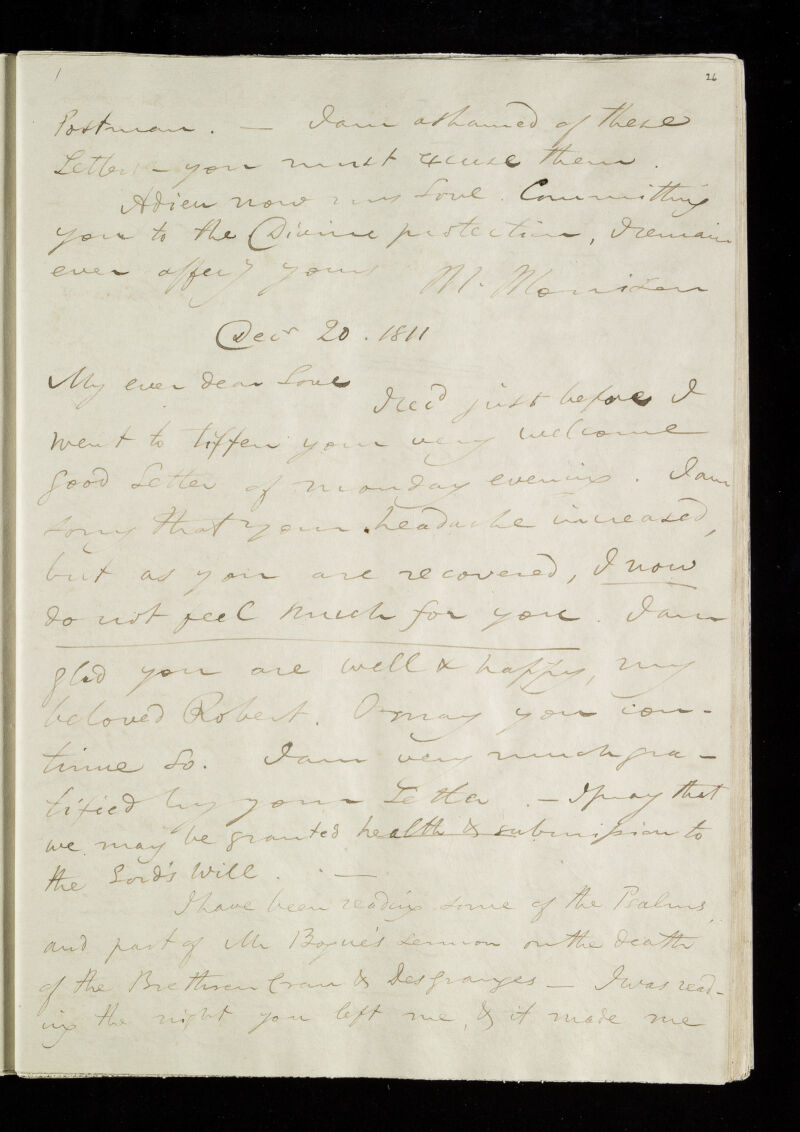 1
26
Postman. — I am ashamed of these
Letters — you must excuse them.
Adieu now my Love. Committing
you to the Divine protection, I remain
ever affecy yours M. Morrison
Decr 20. 1811
My ever dear Love
I recd just before I
went to tiffen your very welcome
good Letter of monday evening. I am
sorry that your headache increased,
but as you are recovered, I now
do not feel much for you. I am
glad you are well & happy, my
beloved Robert. O may you con-
tinue so. I am very much gra-
tified by your Letter. — I pray that
we may be granted health & submission to
the Lord's Will. —
I have been reading some of the Psalms,
and part of Mr Bogue's sermon on the death
of the Brethren Cran & Desgranges — I was read-
ing the night you left me, & it made me